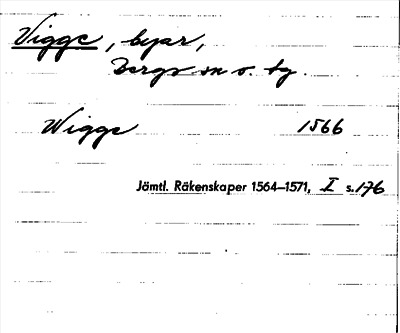 Vigge, byar,
Bergs sn o. tg.
Wigge 1566
Jämtl. Räkenskaper 1564–1571, I s. 176